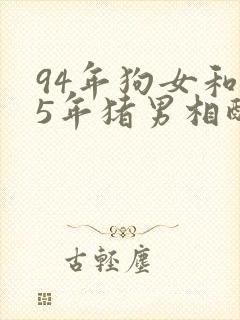 94年狗女和
5年猪男相
古轻尘